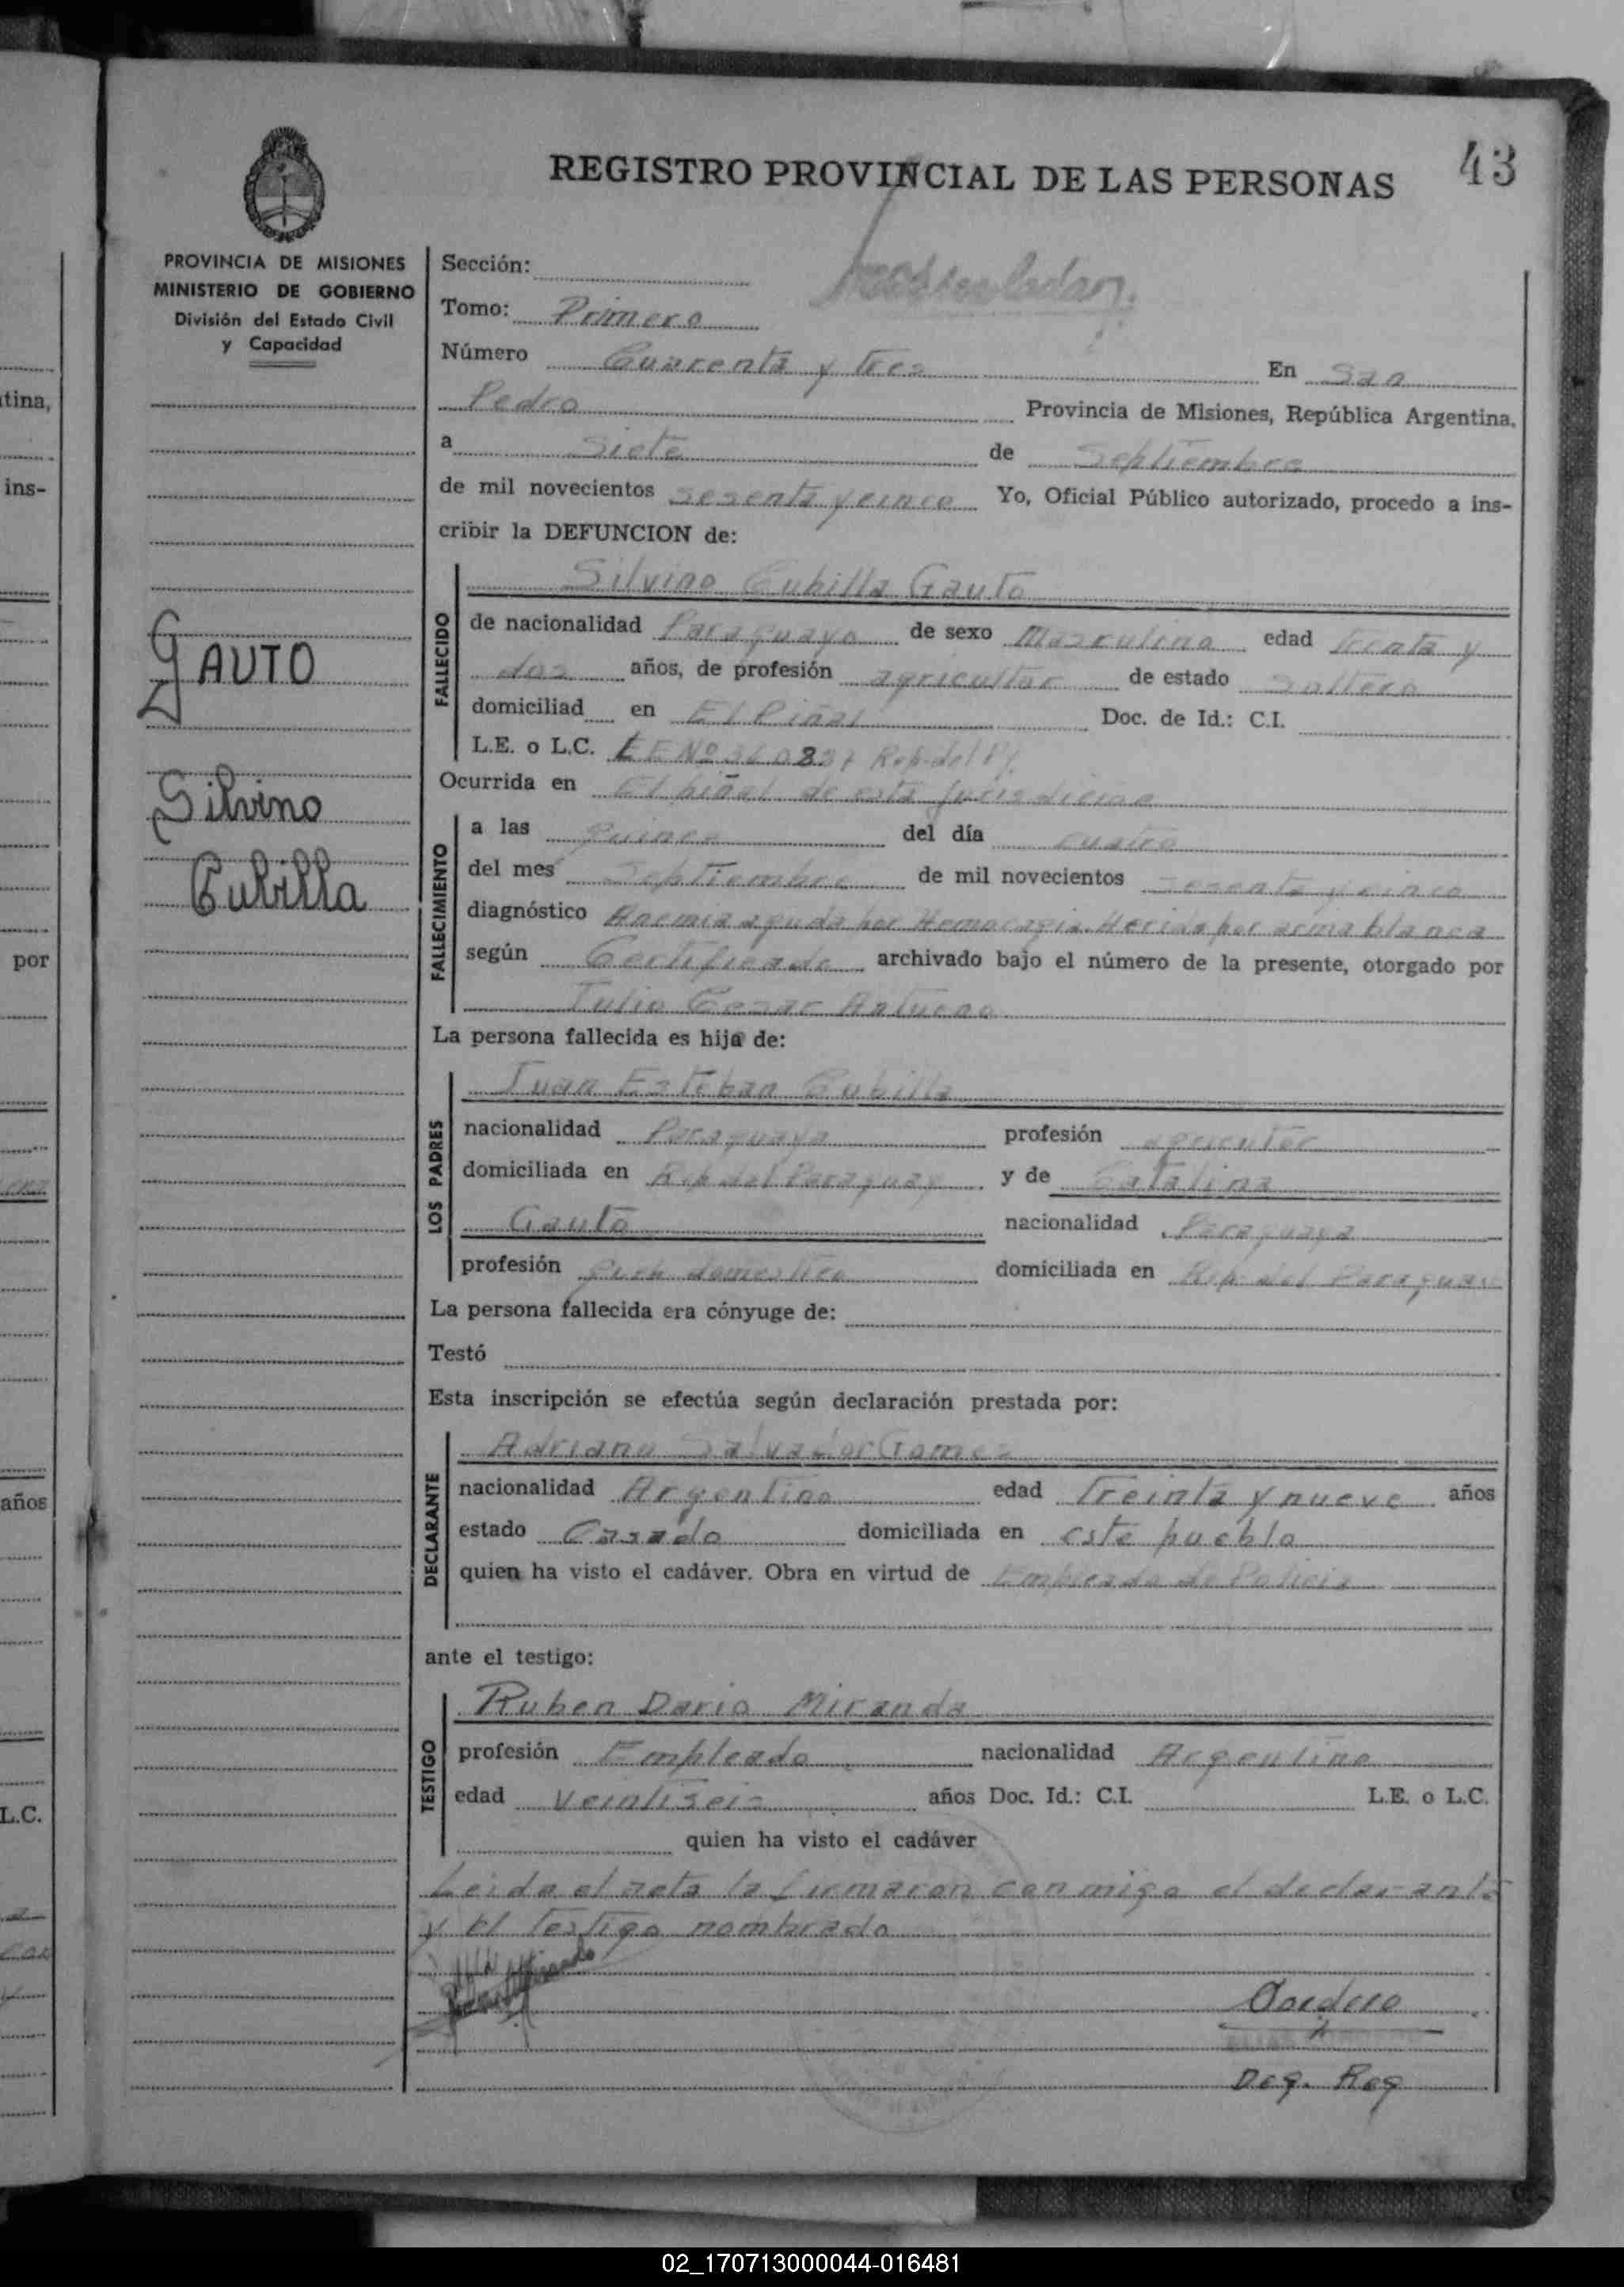 43
REGISTRO PROVINCIAL DE LAS PERSONAS
PROVINCIA DE MISIONES
MINISTERIO DE GOBIERNO
División del Estado Civil
y Capacidad
GAUTO
Silvino
Cubilla
Sección:
Tomo: Primero
Número Cuarenta y tres En San
Pedro Provincia de Misiones, República Argentina,
a Siete de Septiembre
de mil novecientos sesenta y cinco Yo, Oficial Público autorizado, procedo a ins-
cribir la DEFUNCION de:
FALLECIDO
Silvino Cubilla Gauto
de nacionalidad Paraguayo de sexo Masculino edad treinta y
dos años, de profesión agricultor de estado Soltero
domiciliad en El Piñal Doc. de Id.: C.I.
L.E. o L.C. Nº Rep. del Py.
Ocurrida en El piñal de esta Jurisdicion
FALLECIMIENTO
a las quince del día cuatro
del mes Septiembre de mil novecientos sesenta y cinco
diagnóstico Anemia aguda por Hemoragia. Herida por arma blanca
según Certificado archivado bajo el número de la presente, otorgado por
Julio Cesar
La persona fallecida es hija de:
LOS PADRES
Juan Esteban Cubilla
nacionalidad Paraguaya profesión
domiciliada en Rep. del Paraguay y de Catalina
Gauto nacionalidad Paraguaya
profesión domiciliada en Rep. del Paraguay
La persona fallecida era cónyuge de:
Testó
Esta inscripción se efectúa según declaración prestada por:
DECLARANTE
Adriano Salvador Gomez
nacionalidad Argentino edad Treinta y nueve años
estado Casado domiciliada en este pueblo
quien ha visto el cadáver. Obra en virtud de Empleado de Policia
ante el testigo:
TESTIGO
Ruben Dario Miranda
profesión Empleado nacionalidad Argentino
edad Veintiseis años Doc. Id.: C.I. L.E. o L.C.
quien ha visto el cadáver
Leida el acta la firmaron conmigo el declarante
y el testigo nombrado
Deg. Reg
tina,
ins-
por
años
L.C.
02_170713000044-016481